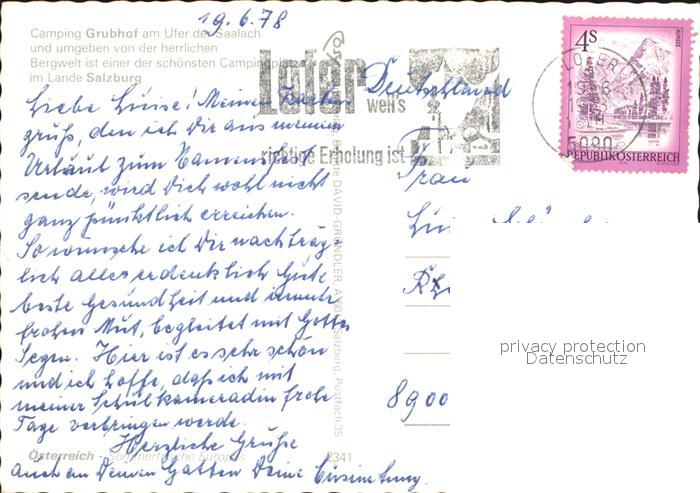 19.6.78
Camping Grubhof am Ufer der Saalach
und umgeben von der herrlichen
Bergwelt ist einer der schönsten Campingplätze
im Lande Salzburg
Liebe Luise! Meinen Karten
gruß, den ich Dir aus meinem
Urlaub zum Namensfest
sende, wird Dich wohl nicht
ganz pünktlich erreichen.
So wünsche ich Dir nachträg
lich alles erdenklich Gute
beste Gesundheit und immer
frohen Mut, begleitet mit Gottes
Segen. Hier ist es sehr schön
und ich hoffe, daß ich mit
meiner Schulkameradin frohe
Tage verbringen werde.
Herzliche Grüße
auch an Deinen Gatten Deine
Österreich - Sommerfrische Europas
2341
DAVID GRÜNDLER, A-5017 Salzburg, Postfach 35
Lofer
weil's
richtige Erholung ist
Deutschland
Frau
8900
4S
ALMSEE
REPUBLIK ÖSTERREICH
LOFER
5090
privacy protection
Datenschutz